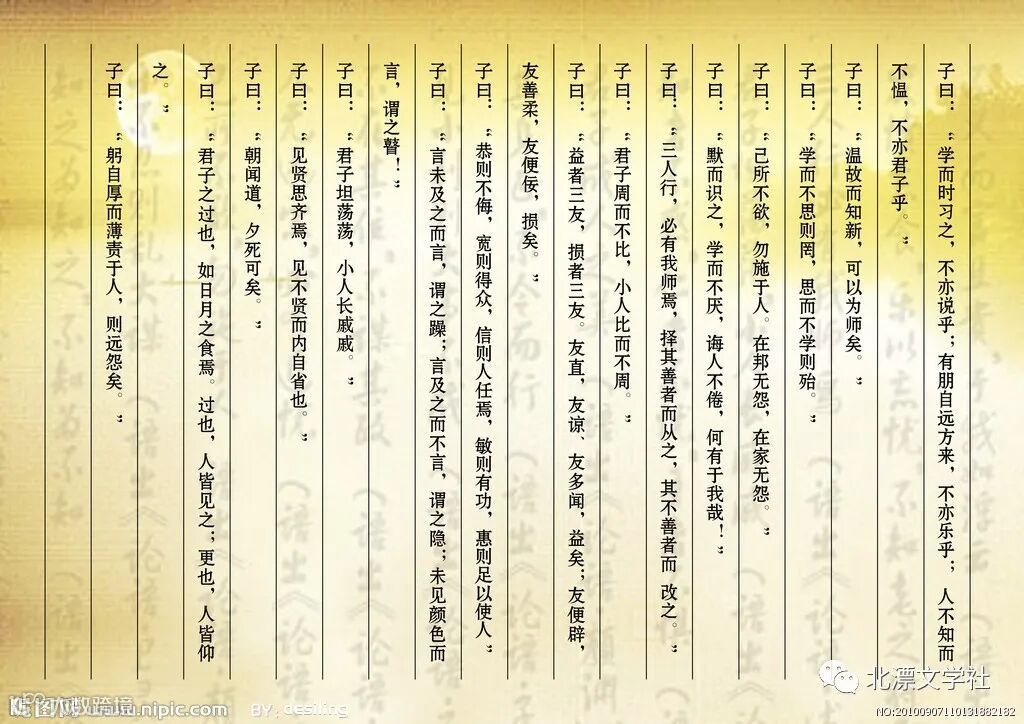 子曰：“学而时习之，不亦说乎；有朋自远方来，不亦乐乎；人不知而
不愠，不亦君子乎。”
子曰：“温故而知新，可以为师矣。”
子曰：“学而不思则罔，思而不学则殆。
子曰：“己所不欲，勿施于人。在邦无怨，在家无怨。”
子曰：“默而识之，学而不厌，诲人不倦，何有于我哉！”
子曰：“三人行，必有我师焉，择其善者而从之，其不善者而 改之。”
子曰：“君子周而不比，小人比而不周。”
子曰：“益者三友，损者三友。友直，友谅、友多闻，益矣；友便辟，
友善柔，友便佞，损矣。”
子曰：“恭则不侮，宽则得众，信则人任焉，敏则有功，惠则足以使人”
子曰：“言未及之而言，谓之躁；言及之而不言，谓之隐；未见颜色而
言，谓之瞽！”
子曰：“君子坦荡荡，小人长戚戚。”
子曰：“见贤思齐焉，见不贤而内自省也。”
子曰：“朝闻道，夕死可矣。”
子曰：“君子之过也，如日月之食焉。过也，人皆见之；更也，人皆仰
之。”
子曰：“躬自厚而薄责于人，则远怨矣。”
北漂文学社
昵图网 www.nipic.com
BY：desiling
NO:20100907110131882182